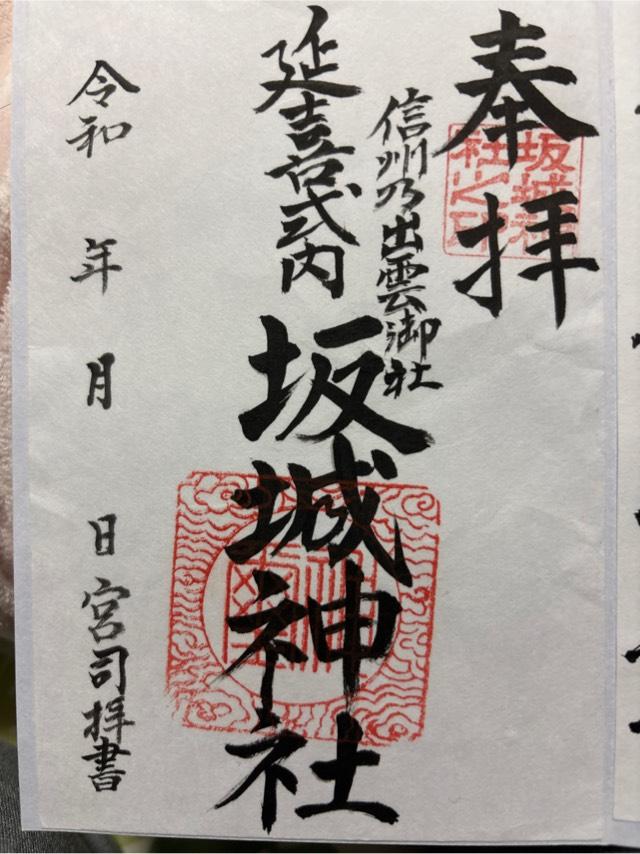 奉拝
坂城神社之印
信州乃出雲御社
延喜式内
坂城神社
令和 年 月 日 宮司拝書